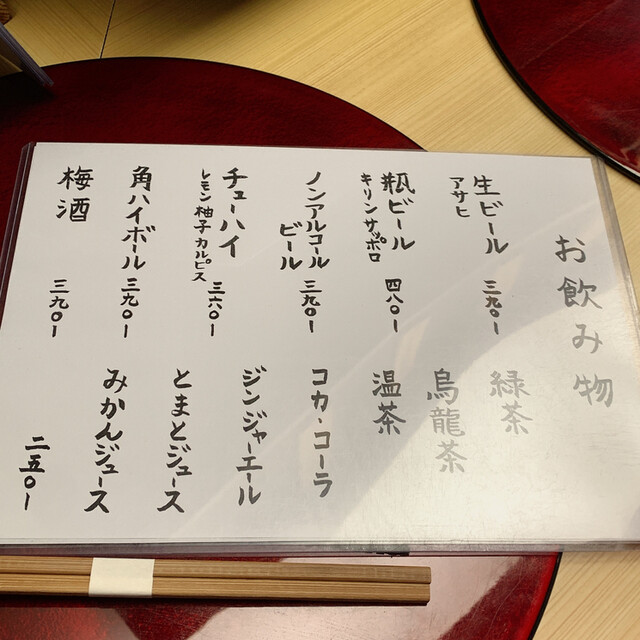 お飲み物
生ビール
アサヒ
三九〇ー
瓶ビール
キリン サッポロ
四八〇ー
ノンアルコール
ビール
三九〇ー
チューハイ
レモン 柚子 カルピス
三六〇ー
角ハイボール 三九〇ー
梅酒 三九〇ー
緑茶
烏龍茶
温茶
コカ・コーラ
ジンジャーエール
とまとジュース
みかんジュース
二五〇ー